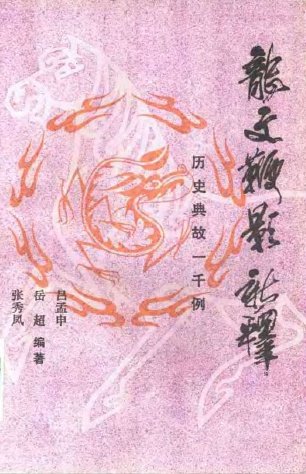 龍文鞭影新釋
历史典故一千例
吕孟申
岳超 编著
张秀凤